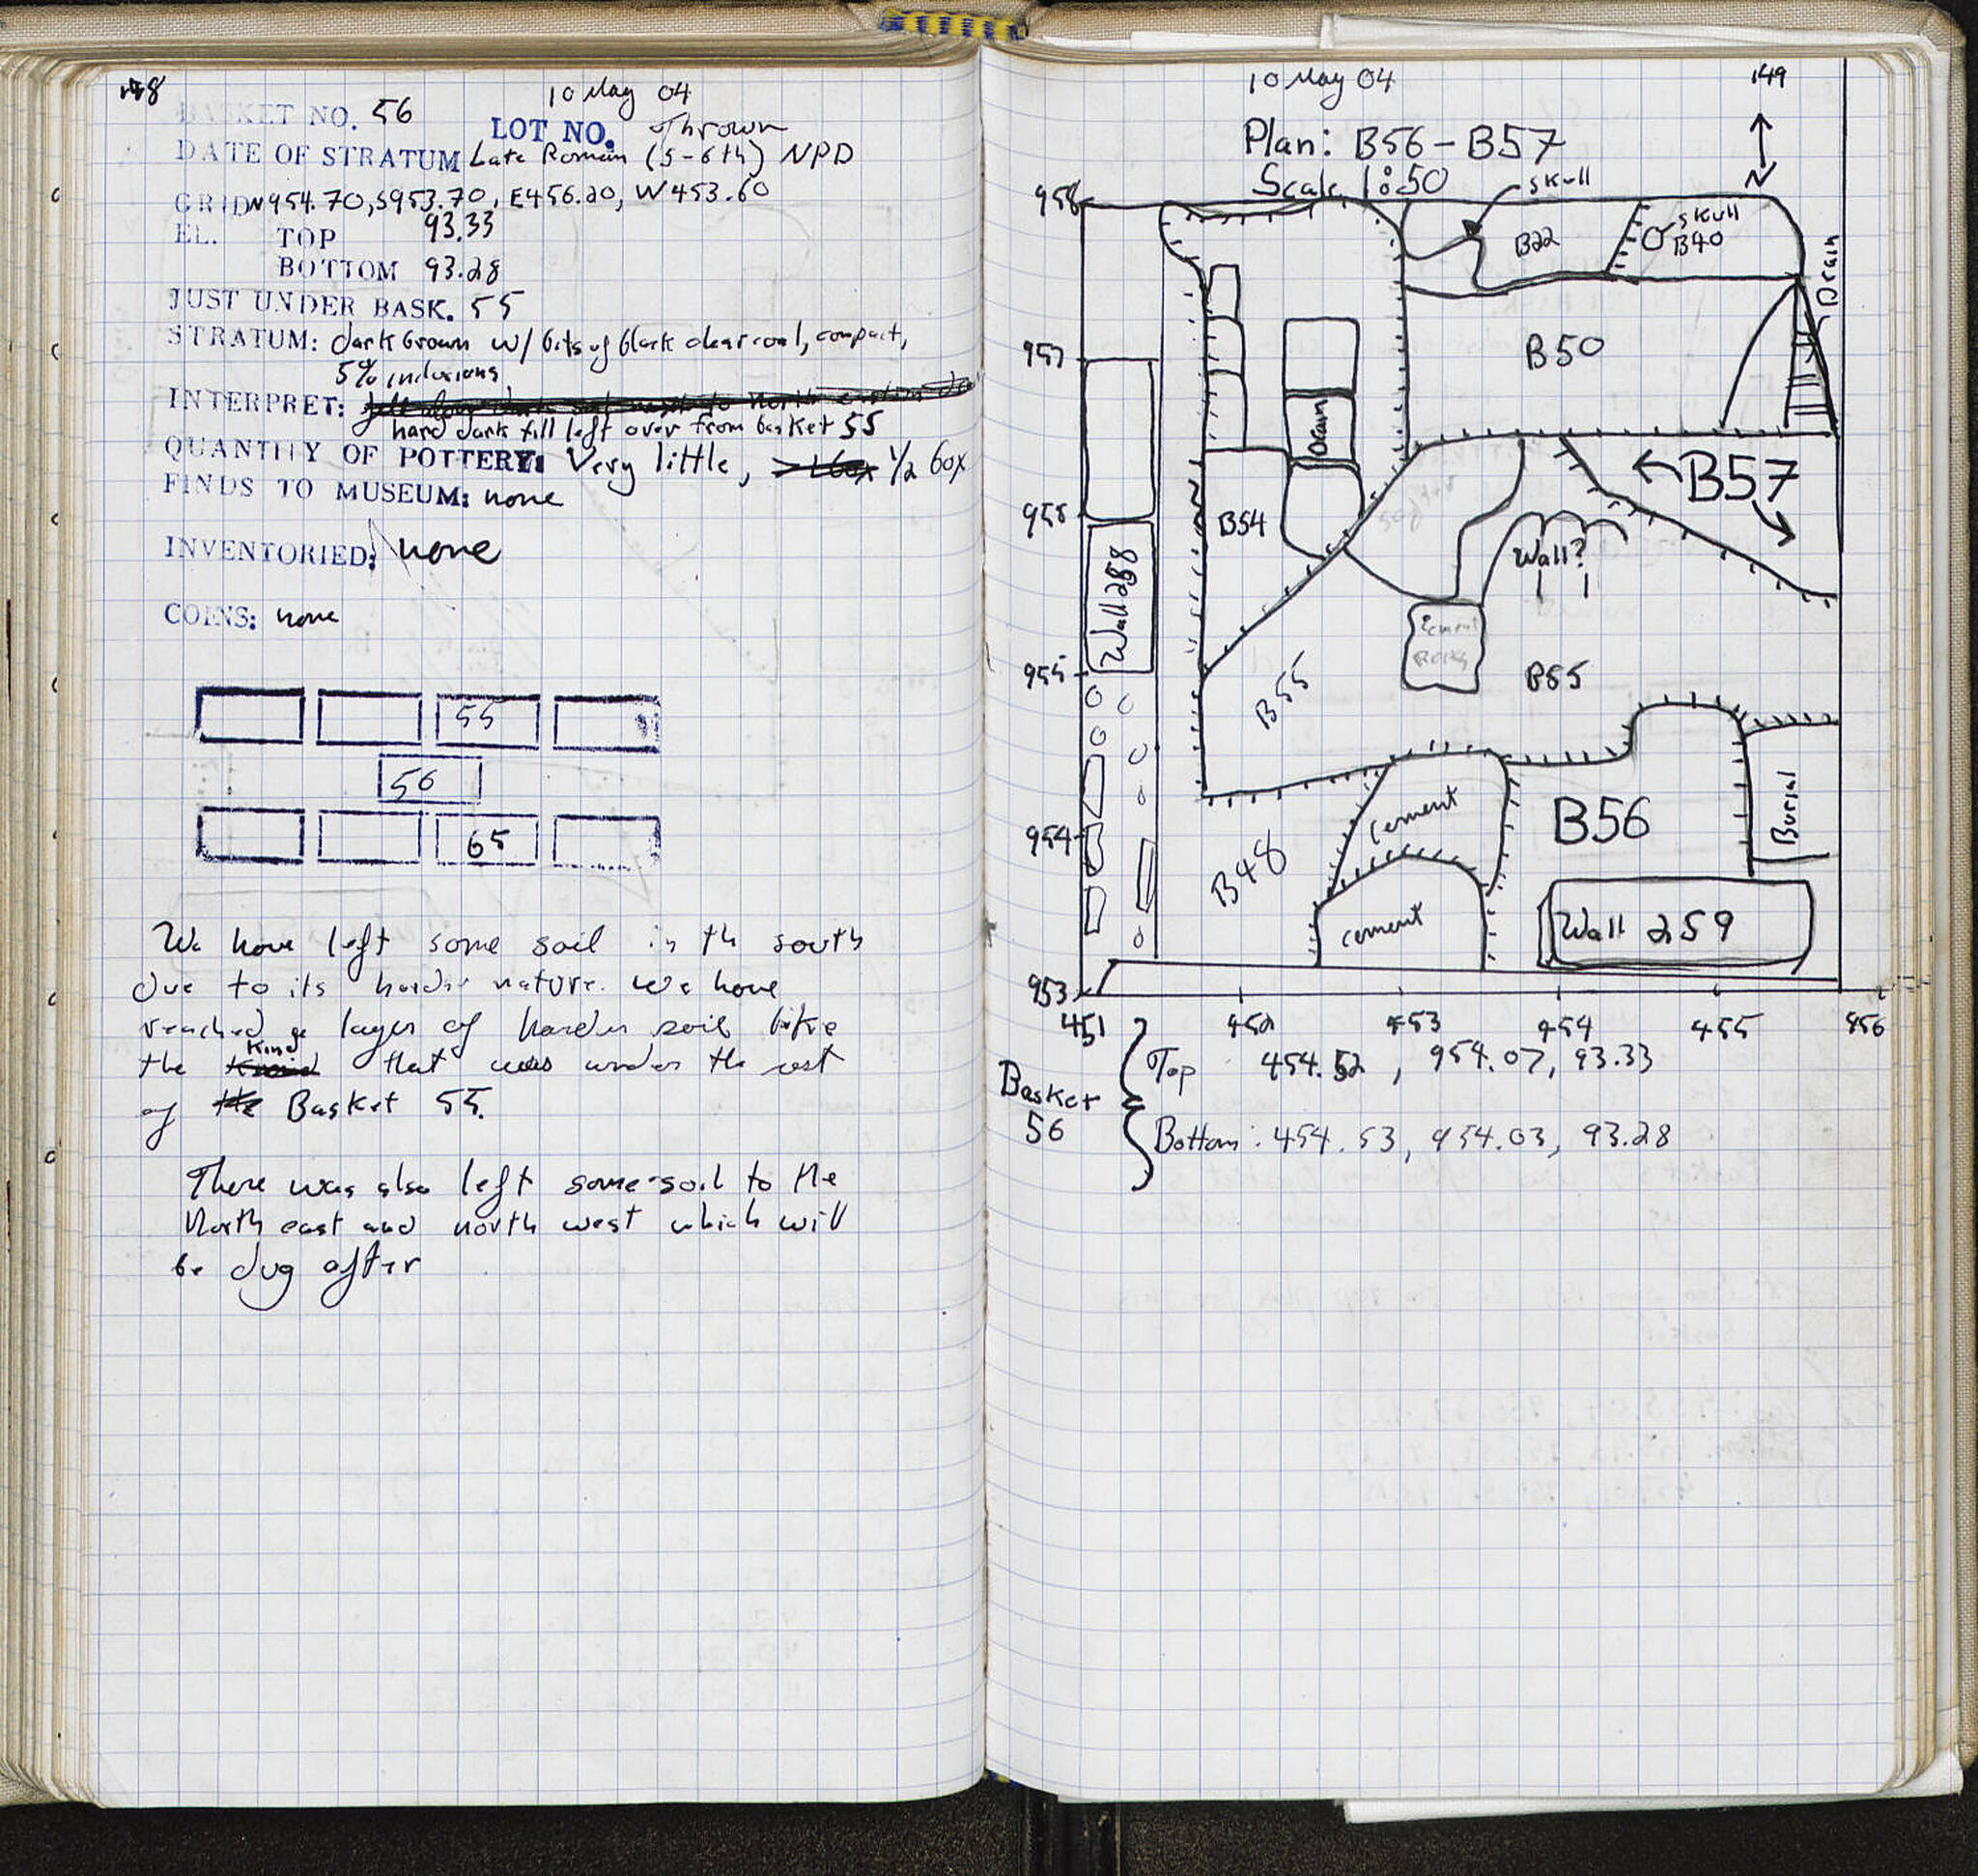 148
10 May 04
BASKET NO. 56
LOT NO. Thrown
DATE OF STRATUM Late Roman (5-6th) NPD
GRID N954.70, S953.70, E456.20, W453.60
EL. TOP 93.33
BOTTOM 93.28
JUST UNDER BASK. 55
STRATUM: dark brown w/ bits of black charcoal, compact,
5% inclusions
INTERPRET:
hard dark fill left over from basket 55
QUANTITY OF POTTERY: Very little, 1/2 box
FINDS TO MUSEUM: none
INVENTORIED: none
COINS: none
55
56
65
We have left some soil in th south
due to its harder nature. We have
reached a layer of harder soil like
the kind that was under the rest
of Basket 55.
There was also left some soil to the
North east and north west which will
be dug after
10 May 04
149
Plan: B56-B57
Scale 1:50
N
skull
958
B22
skull
B40
Drain
957
B50
Drain
B57
956
B54
Wall?
Wall 258
cement
955
B55
B55
Burial
cement
B56
954
B48
cement
Wall 259
953
451
452
453
454
455
456
Basket
56
Top 454.52, 954.07, 93.33
Bottom: 454.53, 954.03, 93.28